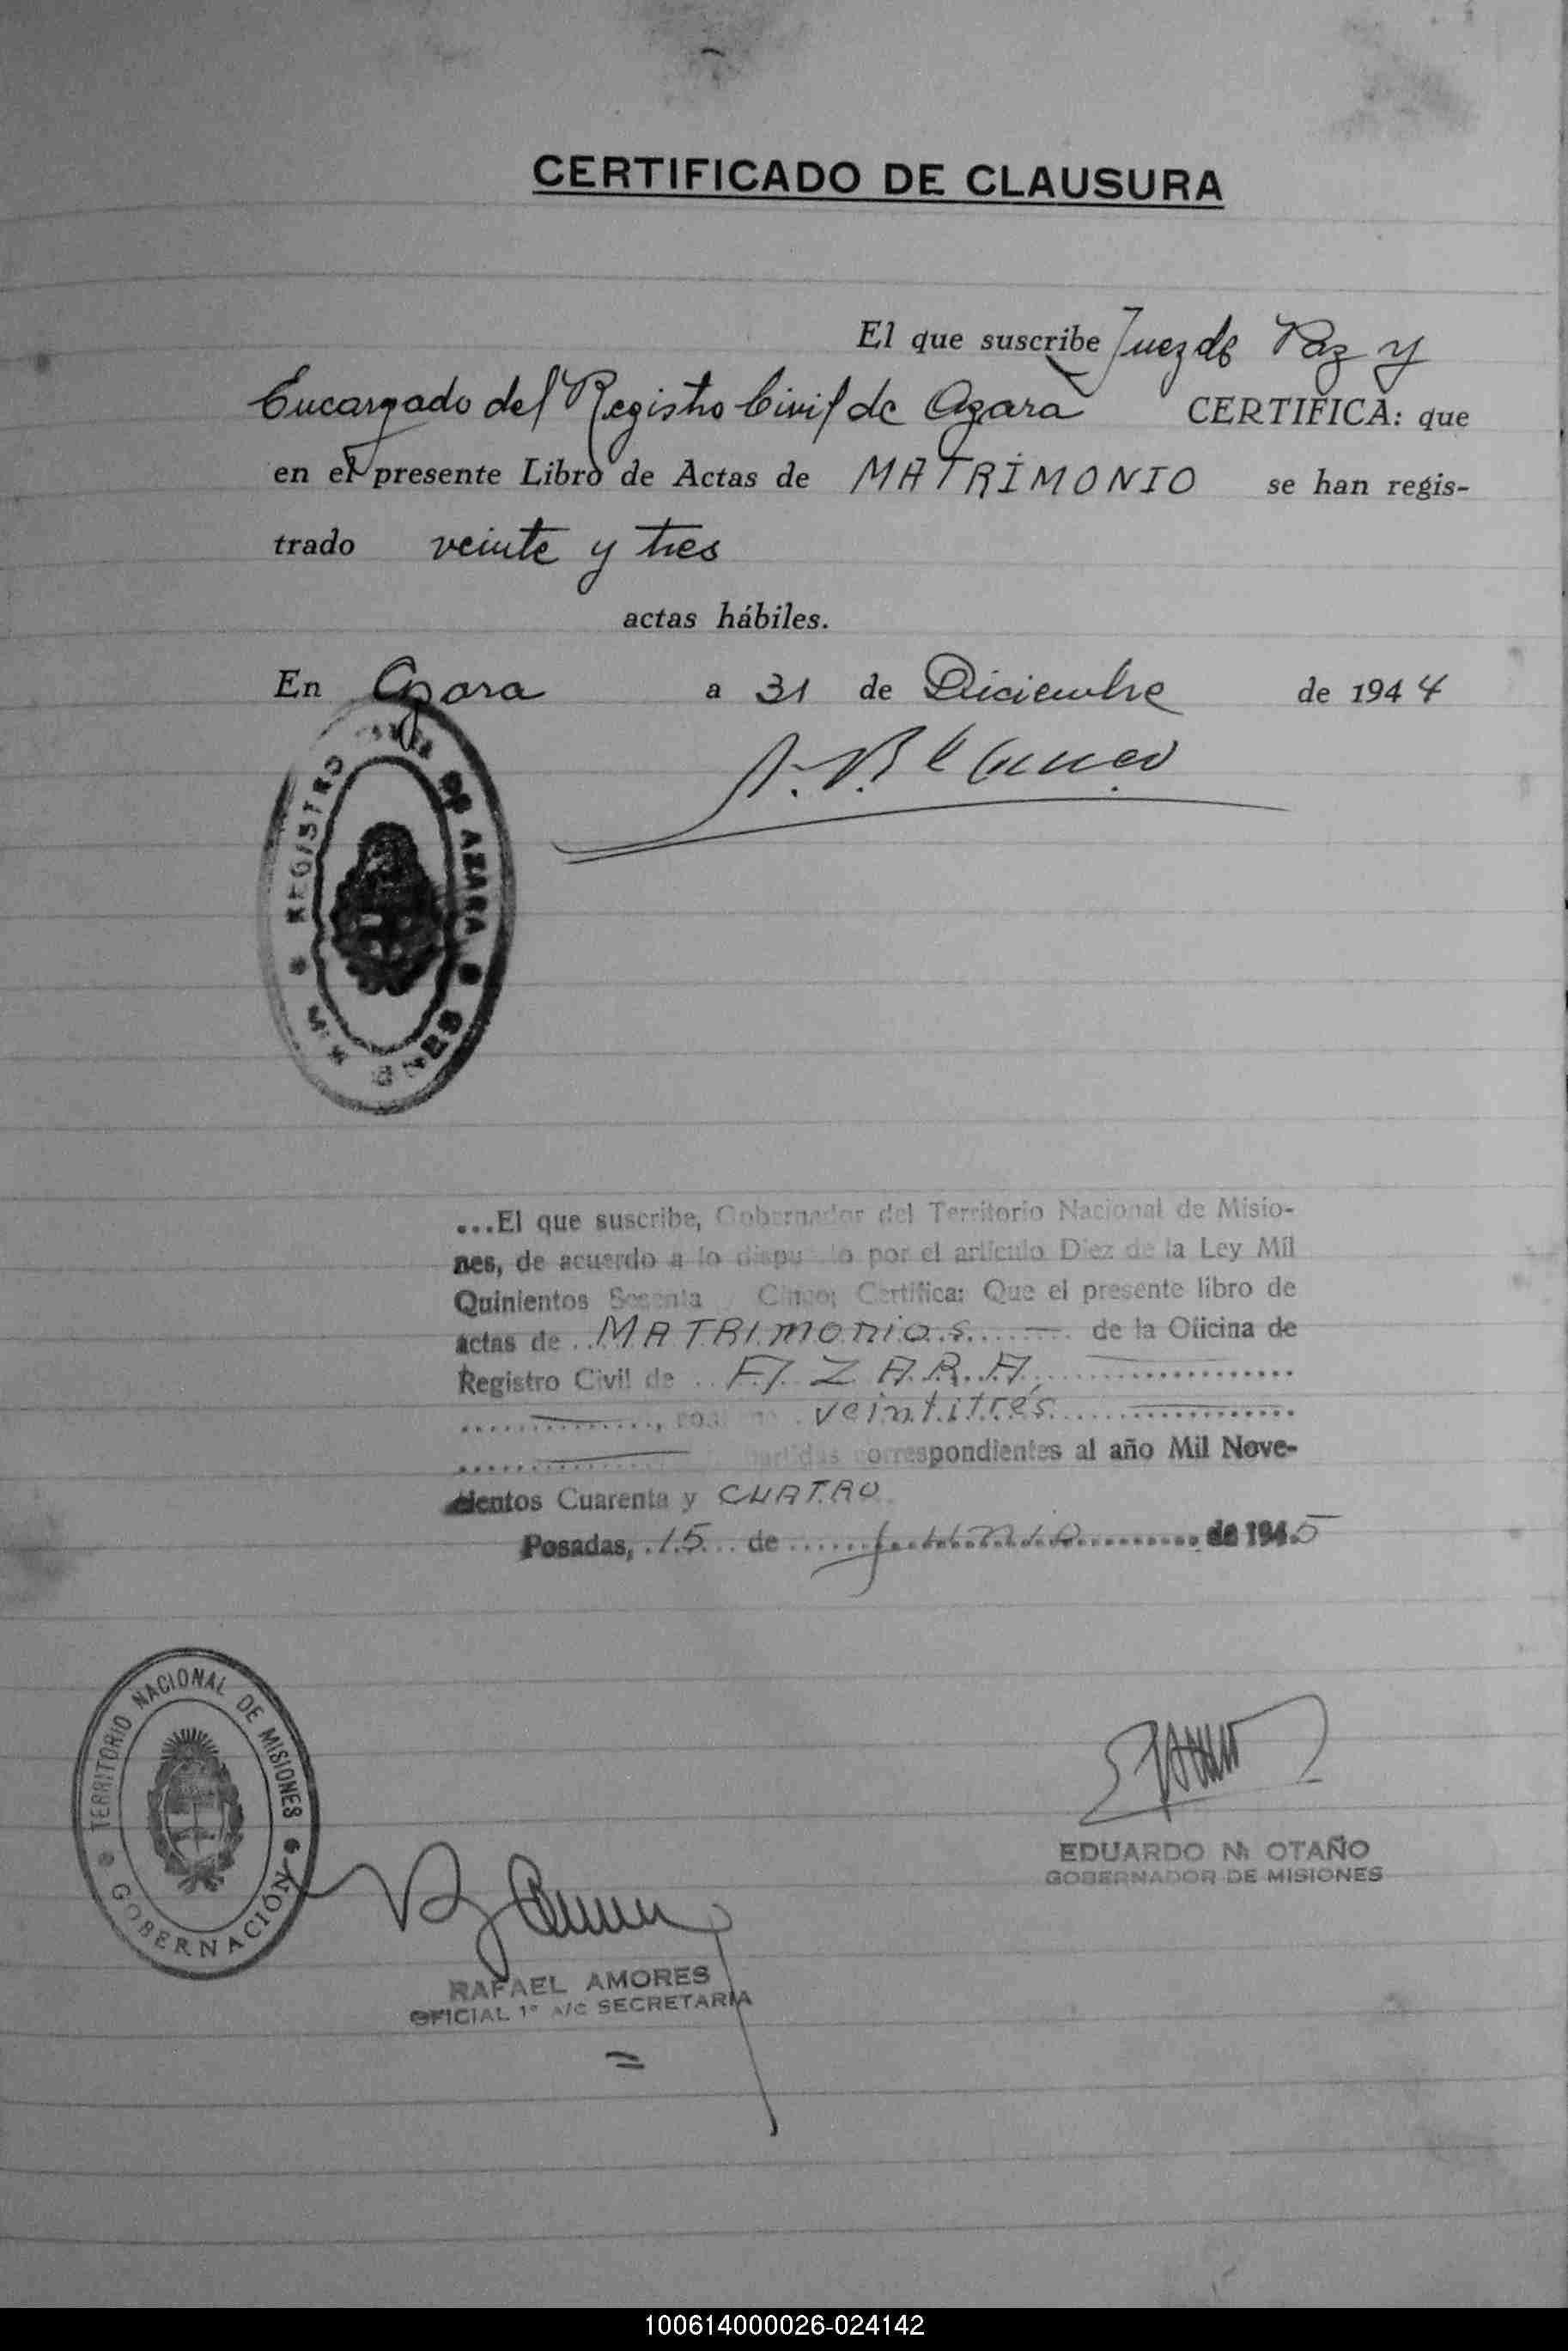 CERTIFICADO DE CLAUSURA
El que suscribe Juez de Paz y
Encargado del Registro Civil de Azara CERTIFICA: que
en el presente Libro de Actas de MATRIMONIO se han regis-
trado veinte y tres
actas hábiles.
En Azara a 31 de Diciembre de 1944
REGISTRO DE AZARA
...El que suscribe, Gobernador del Territorio Nacional de Misio-
nes, de acuerdo a lo por el artículo Diez de la Ley Mil
Quinientos Sesenta Cinco; Certifica: Que el presente libro de
actas de MATRIMONIOS de la Oficina de
Registro Civil de AZARA,
veintitrés
partidas correspondientes al año Mil Nove-
cientos Cuarenta y CUATRO
Posadas, 15 de junio de 1945
TERRITORIO NACIONAL DE MISIONES
GOBERNACIÓN
EDUARDO M. OTAÑO
GOBERNADOR DE MISIONES
RAFAEL AMORES
OFICIAL 1º A/C SECRETARIA
100614000026-024142